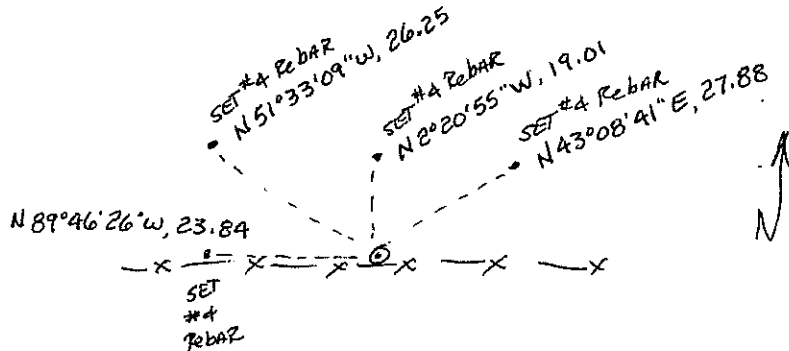 SET #4 RebAR
N 51°33'09"W, 26.25
SET #4 RebAR
N 2°20'55"W, 19.01
SET #4 RebAR
N 43°08'41"E, 27.88
N 89°46'26"W, 23.84
SET
#4
RebAR
N